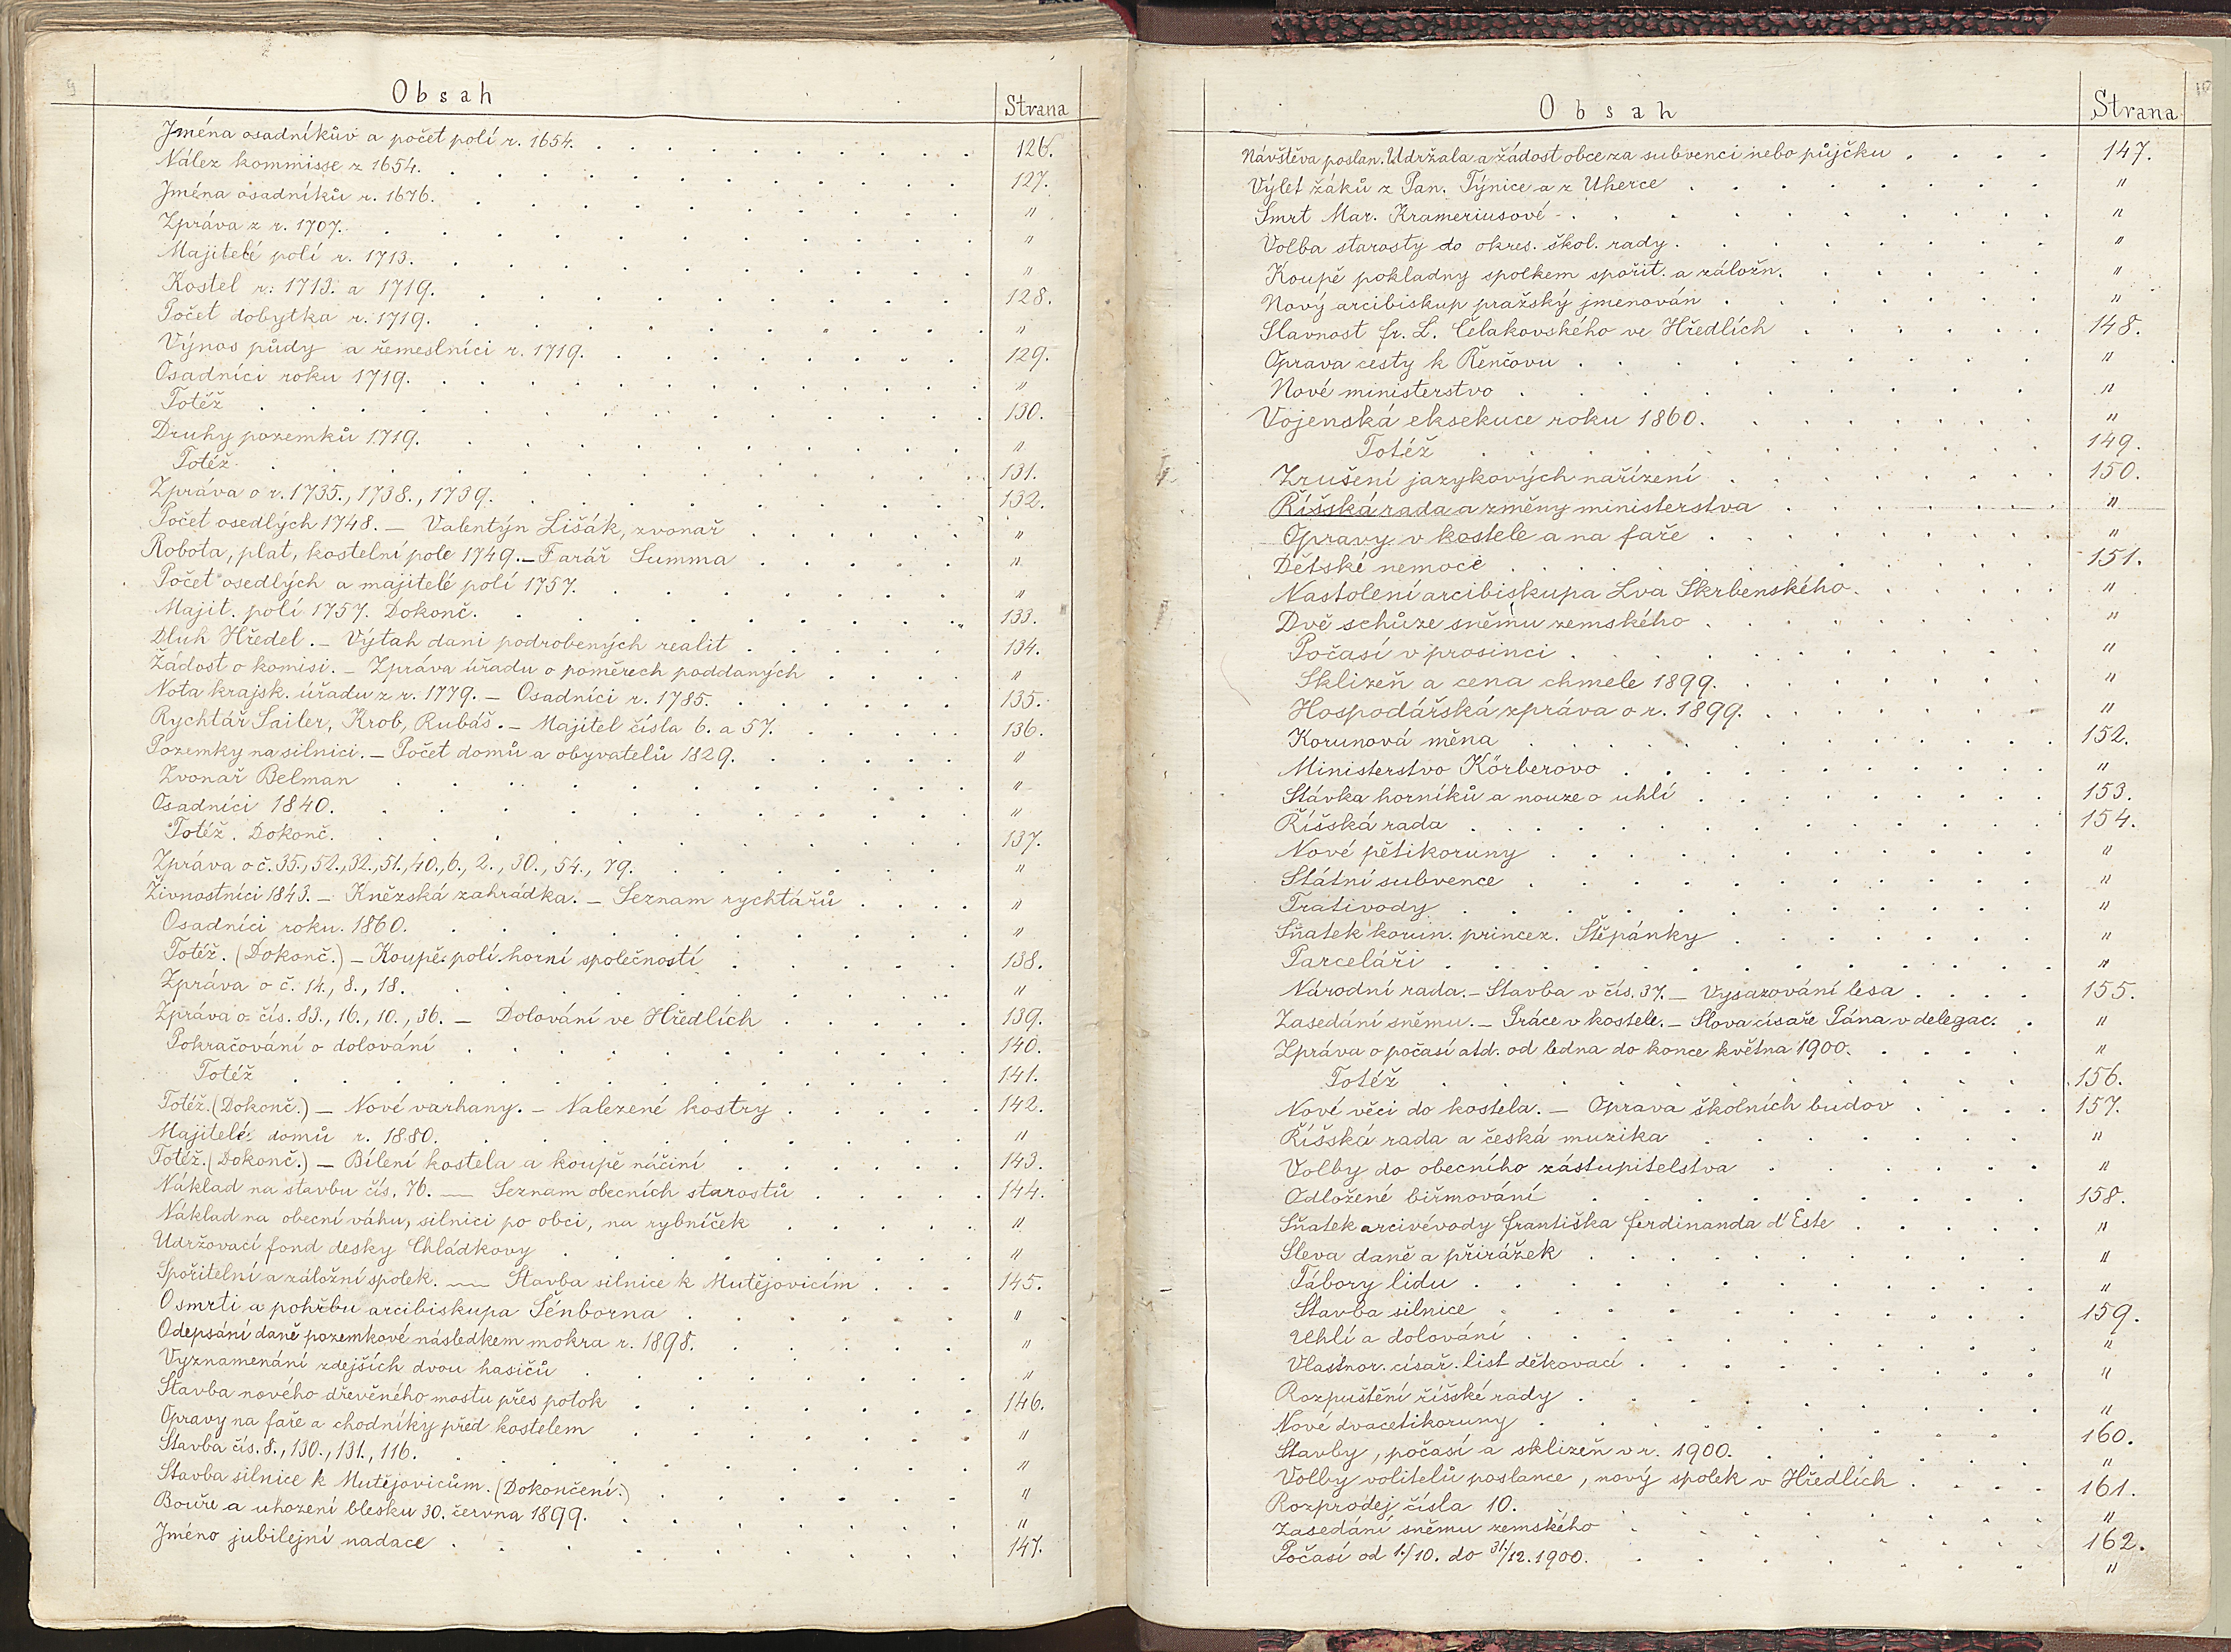 9
Obsah Strana
Jména osadníkův a počet polí r. 1654. 126.
Nález kommisse z 1654. 127.
Jména osadníků r. 1676. "
Zpráva z r. 1707. "
Majitelé polí r. 1713. "
Kostel r. 1713. a 1719. 128.
Počet dobytka r. 1719. "
Výnos půdy a řemeslníci r. 1719. 129.
Osadníci roku 1719. "
Totéž 130.
Druhy pozemků 1719. "
Totéž 131.
Zpráva o r. 1735., 1738., 1739. 132.
Počet osedlých 1748. – Valentýn Lišák, zvonař "
Robota, plat, kostelní pole 1749. – Farář Summa "
Počet osedlých a majitelé polí 1757. "
Majit. polí 1757. Dokonč. 133.
Dluh Hředel. – Výtah dani podrobených realit 134.
Žádost o komisi. – Zpráva úřadu o poměrech poddaných "
Nota krajsk. úřadu z r. 1779. – Osadníci r. 1785. 135.
Rychtář Sailer, Krob, Rubáš. – Majitel čísla 6. a 57. 136.
Pozemky na silnici. – Počet domů a obyvatelů 1829. "
Zvonař Belman "
Osadníci 1840. "
Totéž. Dokonč. 137.
Zpráva o č. 35., 52., 32., 51., 40., 6., 2., 30., 54., 79. "
Živnostníci 1843. – Kněžská zahrádka. – Seznam rychtářů "
Osadníci roku 1860. "
Totéž. (Dokonč.) – Koupě polí horní společností 138.
Zpráva o č. 14., 8., 18. "
Zpráva o čís. 83., 16., 10., 36. – Dolování ve Hředlích 139.
Pokračování o dolování 140.
Totéž 141.
Totéž. (Dokonč.) – Nové varhany. – Nalezené kostry 142.
Majitelé domů r. 1880. "
Totéž. (Dokonč.) – Bílení kostela a koupě náčiní 143.
Náklad na stavbu čís. 76. — Seznam obecních starostů 144.
Náklad na obecní váhu, silnici po obci, na rybníček "
Udržovací fond desky Chládkovy "
Spořitelní a záložní spolek. — Stavba silnice k Mutějovicím 145.
O smrti a pohřbu arcibiskupa Šénborna "
Odepsání daně pozemkové následkem mokra r. 1898. "
Vyznamenání zdejších dvou hasičů "
Stavba nového dřevěného mostu přes potok 146.
Opravy na faře a chodníky před kostelem "
Stavba čís. 8., 130., 131., 116. "
Stavba silnice k Mutějovicům. (Dokončení.) "
Bouře a uhození blesku 30. června 1899. "
Jméno jubilejní nadace 147.
10
Obsah Strana
Návštěva poslan. Udržala a žádost obce za subvenci nebo půjčku 147.
Výlet žáků z Pan. Týnice a z Uherce "
Smrt Mar. Krameriusové "
Volba starosty do okres. škol. rady. "
Koupě pokladny spolkem spořit. a záložn. "
Nový arcibiskup pražský jmenován "
Slavnost fr. L. Čelakovského ve Hředlích 148.
Oprava cesty k Řenčovu "
Nové ministerstvo "
Vojenská eksekuce roku 1860. "
Totéž 149.
Zrušení jazykových nařízení 150.
Říšská rada a změny ministerstva "
Opravy v kostele a na faře "
Dětské nemoce 151.
Nastolení arcibiskupa Lva Skrbenského. "
Dvě schůze sněmu zemského "
Počasí v prosinci "
Sklizeň a cena chmele 1899. "
Hospodářská zpráva o r. 1899. "
Korunová měna 152.
Ministerstvo Körberovo "
Stávka horníků a nouze o uhlí 153.
Říšská rada 154.
Nové pětikoruny "
Státní subvence "
Trativody "
Sňatek korun. princez. Štěpánky "
Parceláři "
Národní rada. – Stavba v čís. 37. – Vysazování lesa 155.
Zasedání sněmu. – Práce v kostele. – Slova císaře Pána v delegac. "
Zpráva o počasí atd. od ledna do konce května 1900. "
Totéž 156.
Nové věci do kostela. – Oprava školních budov 157.
Říšská rada a česká muzika "
Volby do obecního zástupitelstva "
Odložené biřmování 158.
Sňatek arcivévody františka ferdinanda d'Este "
Sleva daně a přirážek "
Tábory lidu "
Stavba silnice 159.
Uhlí a dolování "
Vlastnor. císař. list děkovací "
Rozpuštění říšské rady "
Nové dvacetikoruny 160.
Stavby, počasí a sklizeň v r. 1900. "
Volby volitelů poslance, nový spolek v Hředlích 161.
Rozprodej čísla 10. "
Zasedání sněmu zemského 162.
Počasí od 1./10. do 31./12. 1900. "